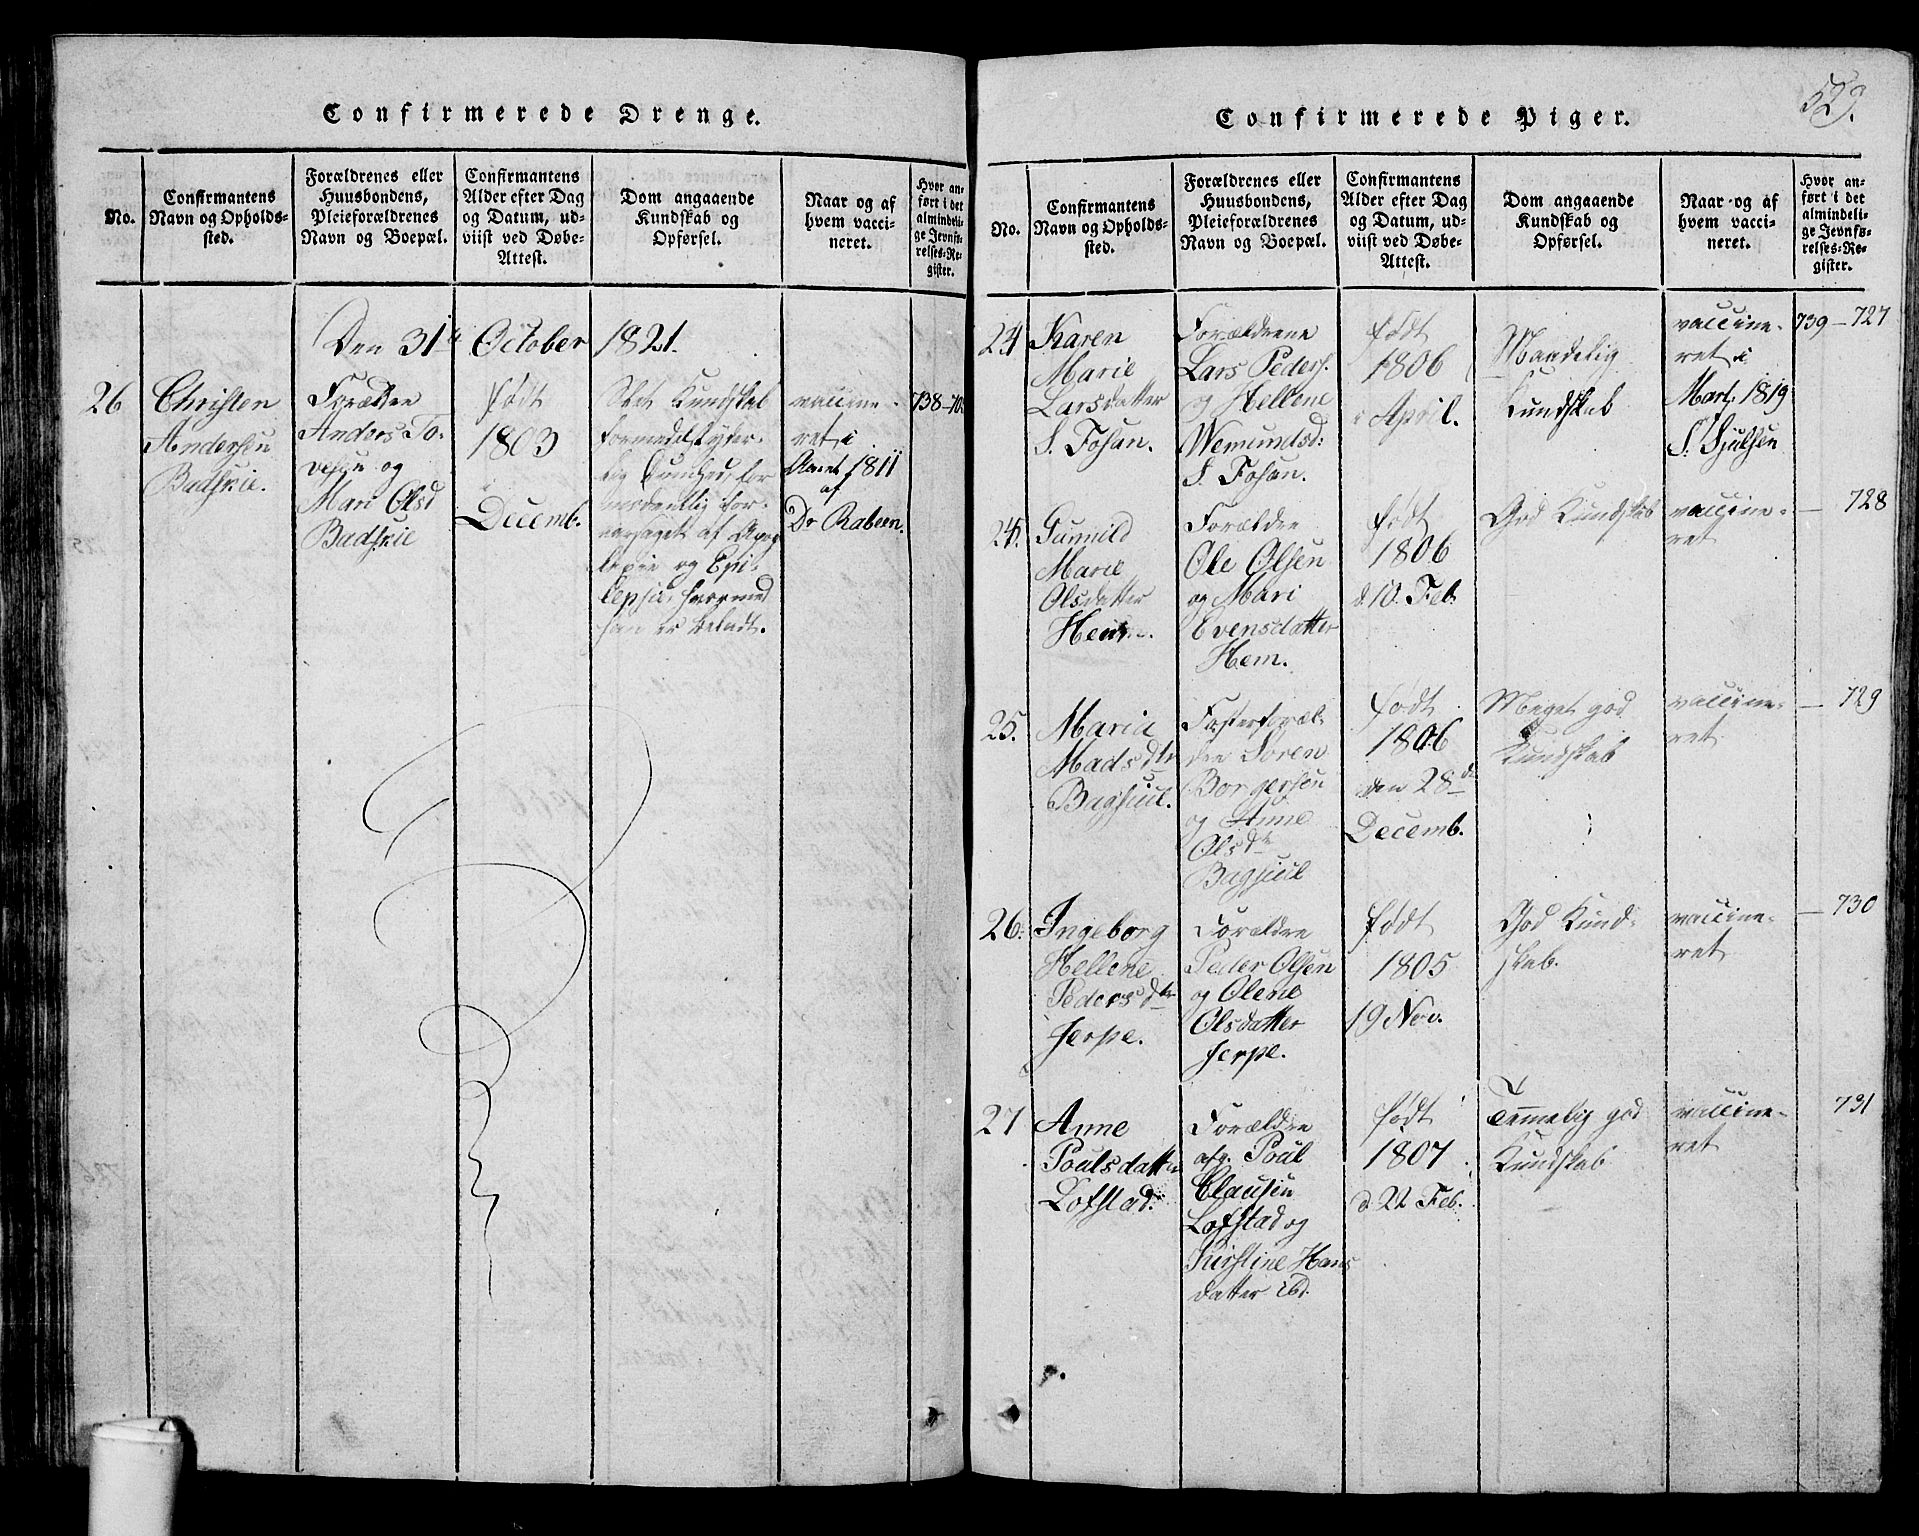 Confirmerede Drenge.
No.
Confirmantens
Navn og Opholds-
sted.
Forældrenes eller
Huusbondens,
Pleieforældrenes
Navn og Boepæl.
Confirmantens
Alder efter Dag
og Datum, ud-
viist ved Døbe-
Attest.
Dom angaaende
Kundskab og
Opførsel.
Naar og af
hvem vacci-
neret.
Hvor an-
ført i det
almindeli-
ge Jevnfø-
relses-Re-
gister.
Den 31te October 1821.
26
Christen
Andersen
Forældre
Anders To-
vesen og
Mari Olsd
født
1803
Decemb.
Slet Kundskab
formedelst
han er beladt.
vaccine-
ret i
Aaret 1811
af
Dr Rabeen.
738-
Confirmerede Piger.
529.
No.
Confirmantens
Navn og Opholds-
sted.
Forældrenes eller
Huusbondens,
Pleieforældrenes
Navn og Boepæl.
Confirmantens
Alder efter Dag
og Datum, ud-
viist ved Døbe-
Attest.
Dom angaaende
Kundskab og
Opførsel.
Naar og af
hvem vacci-
neret.
Hvor an-
ført i det
almindeli-
ge Jevnfø-
relses-Re-
gister.
Karen
Marie
Larsdatter
S. Fosan.
Forældrene
Lars Peders.
og Hellene
Wemundsd:
S. Fosan.
født
1806
i April.
Maadelig
Kundskab
vaccine-
ret i
Mart. 1819
739-727
Gunnild
Marie
Olsdatter
Hem.
Forældre
Ole Olsen
og Mari
Evensdatter
Hem.
født
1806
d. 10. Feb.
God Kundskab
vaccine-
ret
— 728
25.
Maria
Madsdtr
Bagsuul.
Fosterforæl-
dre Soren
Borgersen
og Anne
Olsdtr
Bagsuul
født
1806
den 28de
Decemb.
Meget god
Kundskab
vaccine-
ret
— 729
26.
Ingeborg
Hellene
Pedersdtr
Jerpe.
Forældre
Peder Olsen
og Olene
Olsdatter
Jerpe.
født
1805
19 Nov.
God Kund-
skab.
vaccine-
ret
— 730
27
Anne
Poulsdatter
Lofstad.
Forældre
afg. Poul
Clausen
Lofstad og
Kirstine Hans
datter ibd.
født
1807
d. 22 Feb.
Temmelig god
Kundskab
vaccine-
ret
731